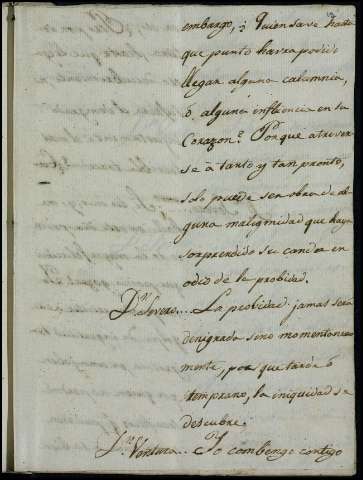 embargo, ¿ Quien save hasta
que punto havra podido
llegar alguna calumnia,
ó alguna influencia en su
Corazon? Porque atrever
se á tanto y tan pronto,
solo puede ser obra de al
guna malignidad que haya
sorprendido su candor en
odio de la probidad.
Dn. Severo... La probidad jamas será
denigrada sino momentanea
mente, por que tarde ó
temprano, la iniquidad se
descubre.
Dn. Ventura... Yo combengo contigo